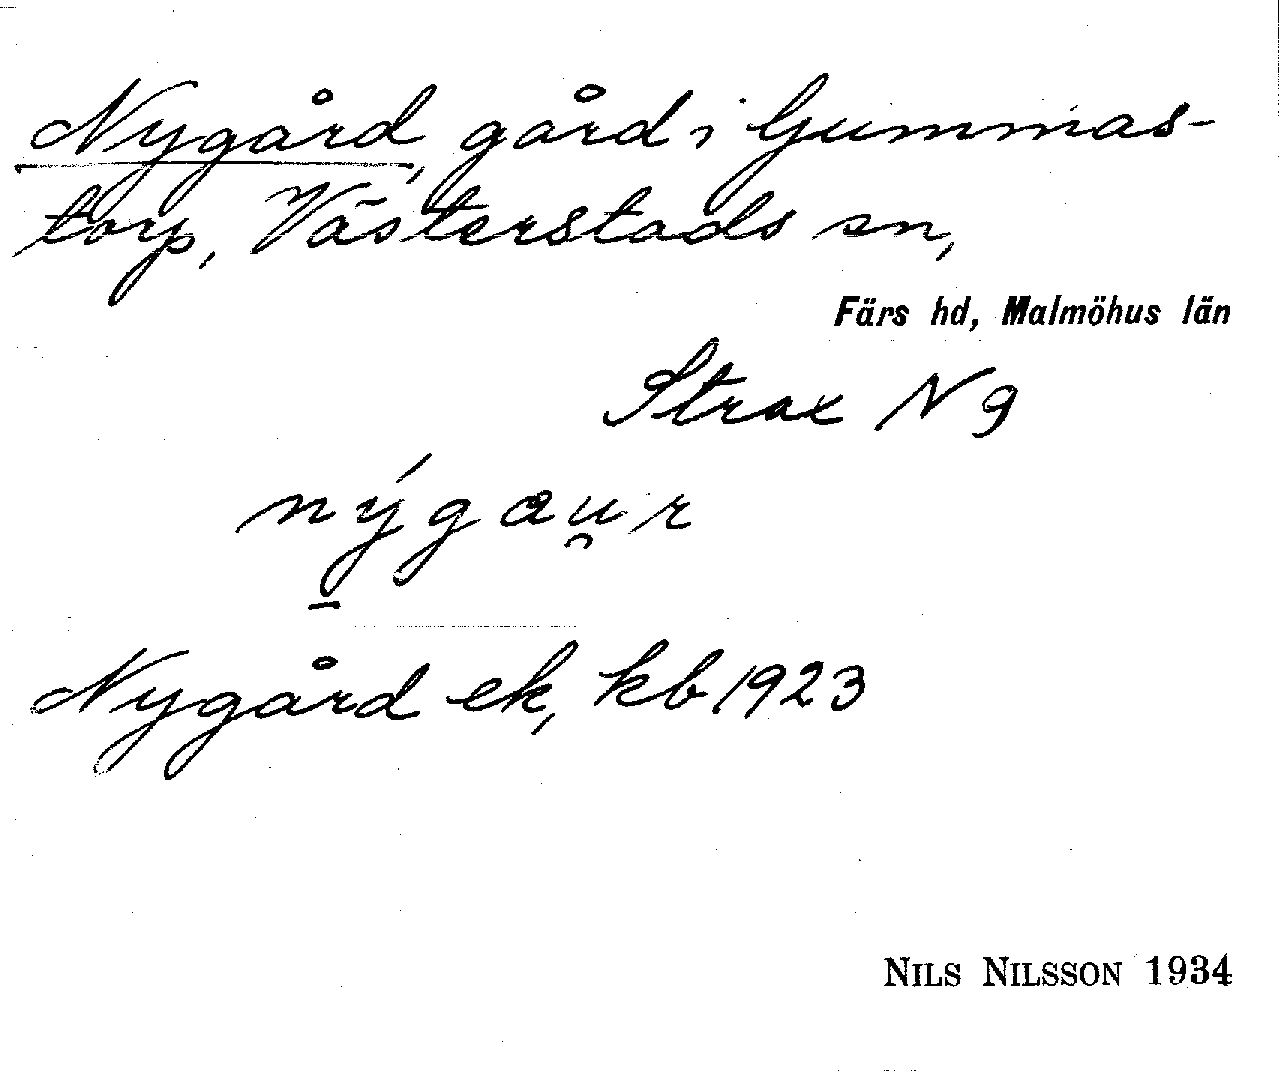 Nygård, gård i Gummas-
torp, Västerstads sn,
Färs hd, Malmöhus län
Strax N 9
nýgau̯r
Nygård ek, kb 1923
NILS NILSSON 1934